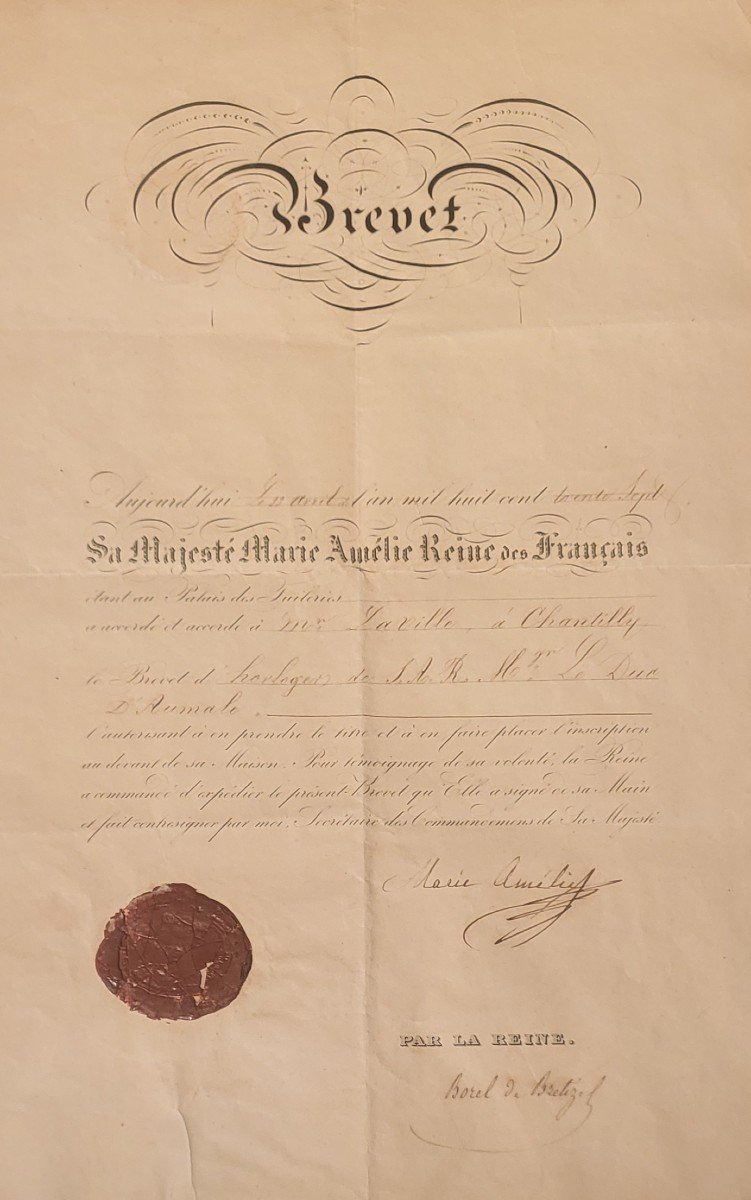 Brevet
Aujourd'hui avril l'an mil huit cent trente Sept
Sa Majesté Marie Amélie Reine des Français
étant au Palais des Tuileries
a accordé et accorde à Mr. Laville, à Chantilly
le Brevet d'horloger de S. A. R. Mgr. Le Duc
D'Aumale.
l'autorisant à en prendre le titre et à en faire placer l'inscription
au devant de sa Maison. Pour témoignage de sa volonté, la Reine
a commandé d'expédier le présent Brevet qu'Elle a signé de sa Main
et fait contresigner par moi, Secrétaire des Commandemens de Sa Majesté
Marie Amélie
PAR LA REINE.
Borel de Bretizel